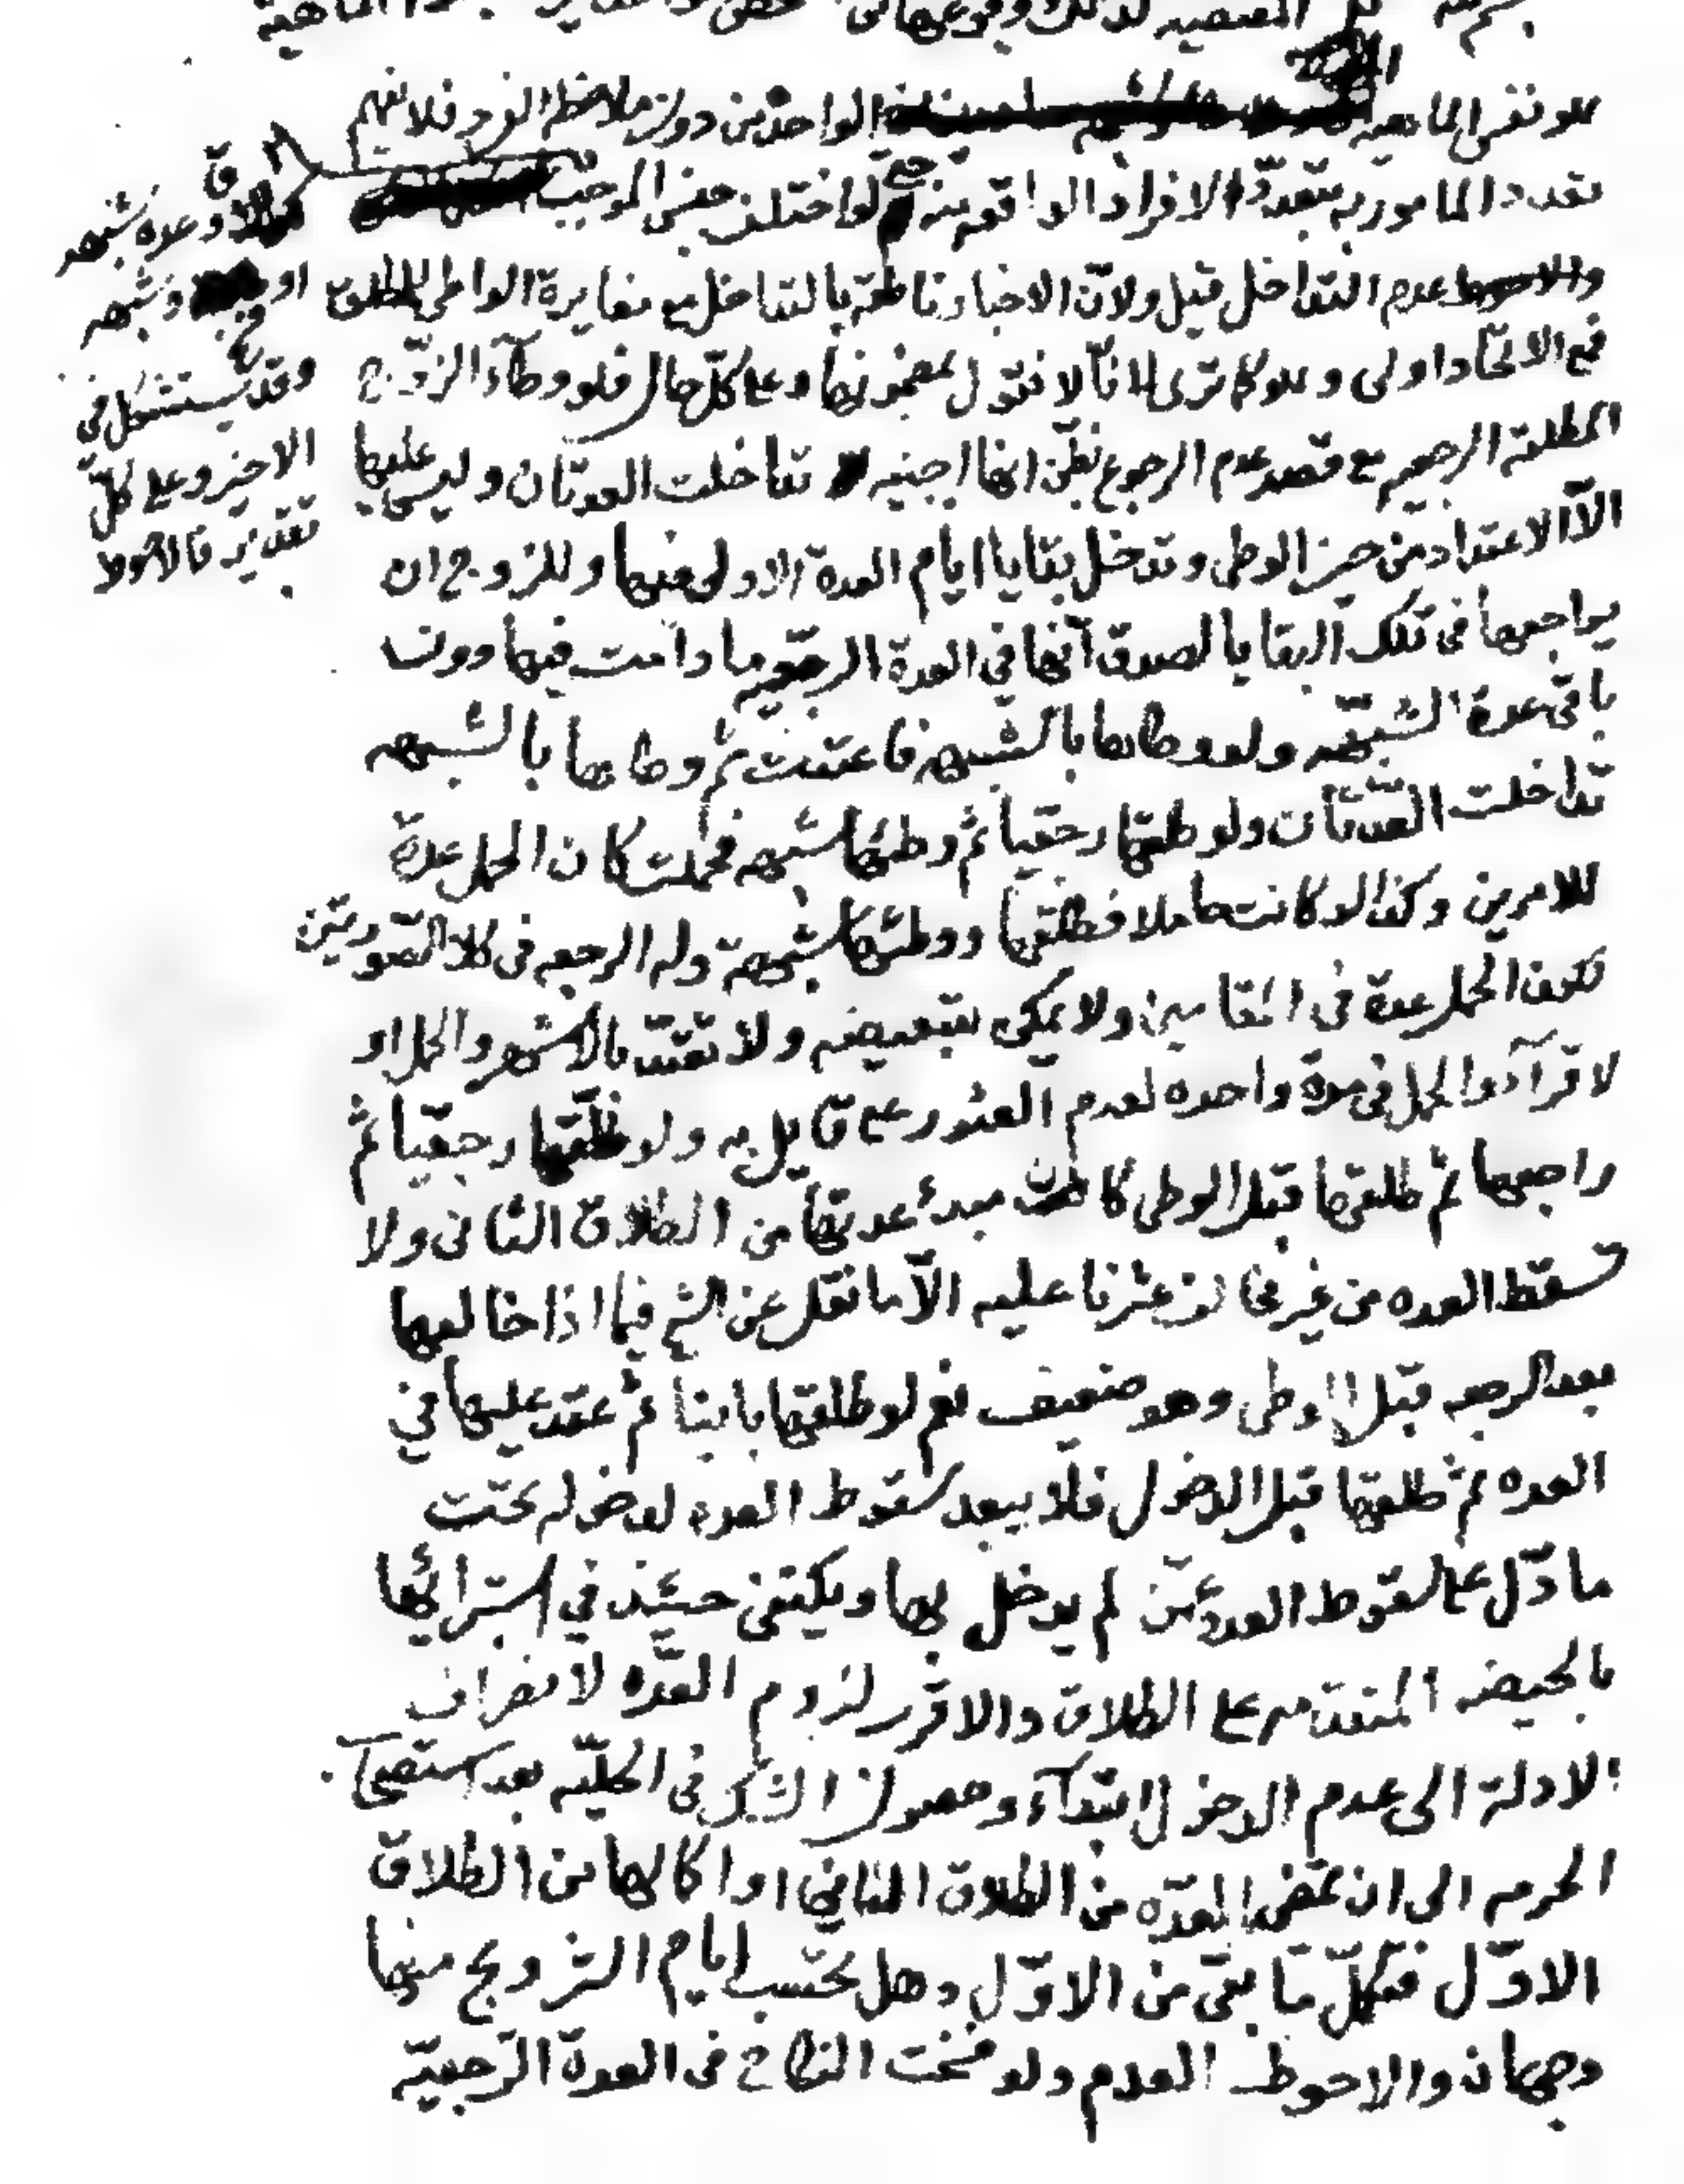 على نفس الماهية الواحدة من دون ملاحظة الفرد فلا يفهم
تعدد المأمور به بتعدّد الافراد الواقعة منه لو اختلف جنس الموجب
عدم التداخل قيل ولانّ الاخبار ناطقة بالتداخل مع مغايرة الواطي للمطلق
فمع الاتّحاد اولى وهو كما ترى لانّا لا نقول بمضمونها وعلى كلّ حال فلو وطأ الزوج
المطلقة الرجعيه مع قصد عدم الرجوع بظن انها اجنبيه تداخلت العدتان وليس عليها
الّا الاعتداد من حين الوطي وتدخل بقايا ايام العدة الاولى فيها وللزوج ان
يراجعها في تلك البقايا لصدق انّها في العدة الرجعيه ما دامت فيها دون
باقي عدة الشبهه ولو وطاها بالشبهه فاعتدت ثم وطاها بالشبهه
تداخلت العدّتان ولو طلقها رجعيا ثم وطئها شبهه فحملت كان الحمل عدة
للامرين وكذا لو كانت حاملا فطلقها ووطئها شبهة وله الرجعه في كلا الصورتين
لكون الحمل عدة في المقامين ولا يمكن تبعيضه ولا تعتد بالاشهر والحمل او
لاقراء والحمل في مدة واحده لعدم العثور على قايل به ولو طلّقها رجعيّا ثم
راجعها ثم طلقها قبل الوطي كان مبدء عدتها من الطلاق الثاني ولا
تسقط العده من غير خلاف عثرنا عليه الّا ما نقل عن الشيخ فيما اذا خالعها
بعد الرجعه قبل الوطي وهو ضعيف نعم لو طلقها باينا ثم عقد عليها في
العده ثم طلقها قبل الدخول فلا يبعد سقوط العده لدخوله تحت
ما دّل على سقوط العدة عمّن لم يدخل بها ويكتفى حينئذ في استبرائها
بالحيضه المتقدمه على الطلاق والاقرب لزوم العدّه لانصراف
الادلة الى عدم الدخول ابتداء وحصول الشك في الحليّه بعد استصحاب
الحرمه الى ان تمضي العدّه من الطلاق الثاني او اكمالها من الطلاق
الاوّل فتكمل ما بقى من الاوّل وهل يحتسب ايام التزويج منها
وجهان والاحوط العدم ولو فسخت النكاح في العدة الرّجعيّه
وعدة شبهه
او وشبهه
وقد يستشكل في
الاخير وعلى كلّ
تقدير فالاحوط